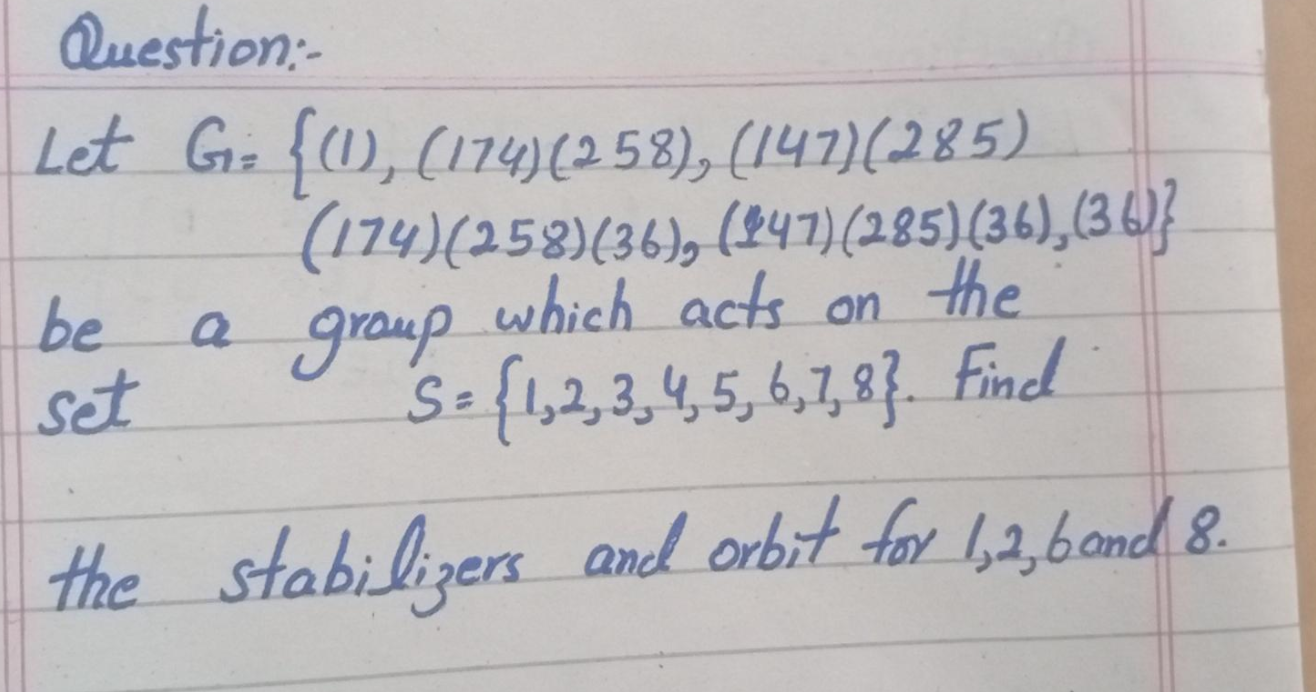 Question:-
Let G = {(1), (174)(258), (147)(285)
(174)(258)(36), (147)(285)(36), (36)}
be a group which acts on the
set S = {1,2,3,4,5,6,7,8}. Find
the stabilizers and orbit for 1,2,6 and 8.